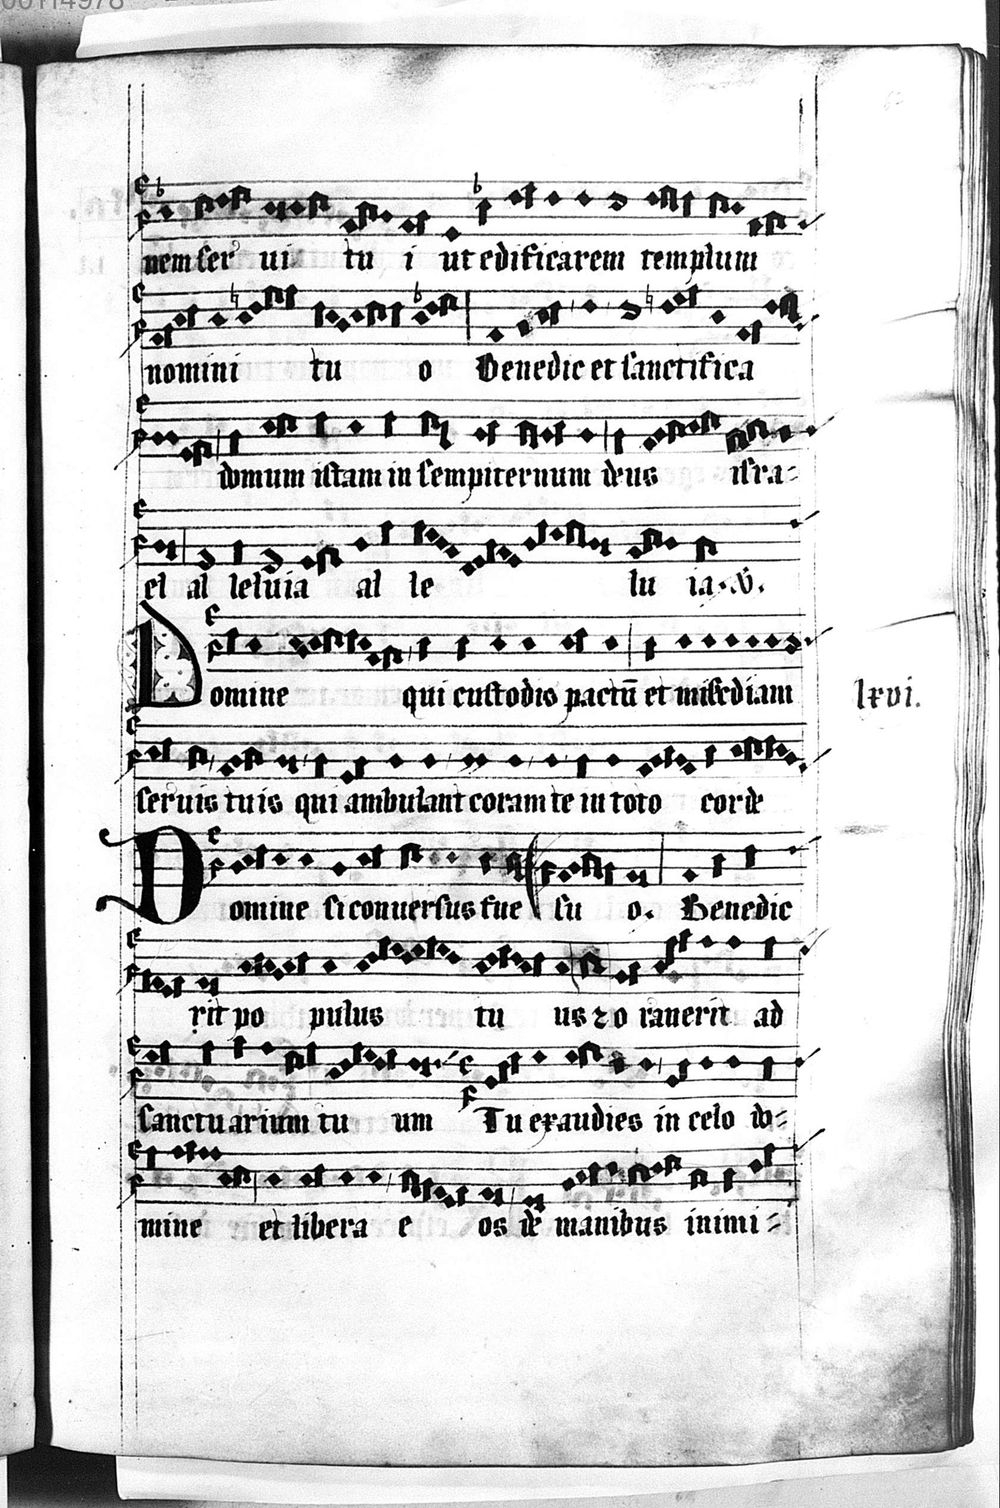 00114978
nem ser ui tu i ut edificarem templum
nomini tu o Benedic et sanctifica
domum istam in sempiternum deus isra=
el al leluia al le lu ia. v̄.
Domine qui custodis pactū et miscdiam
lxvi.
seruis tuis qui ambulant coram te in toto corde
Domine si conuersus fue su o. Benedic
rit po pulus tu us ⁊ o rauerit ad
sanctuarium tu um Tu exaudies in celo do=
mine et libera e os de manibus inimi=